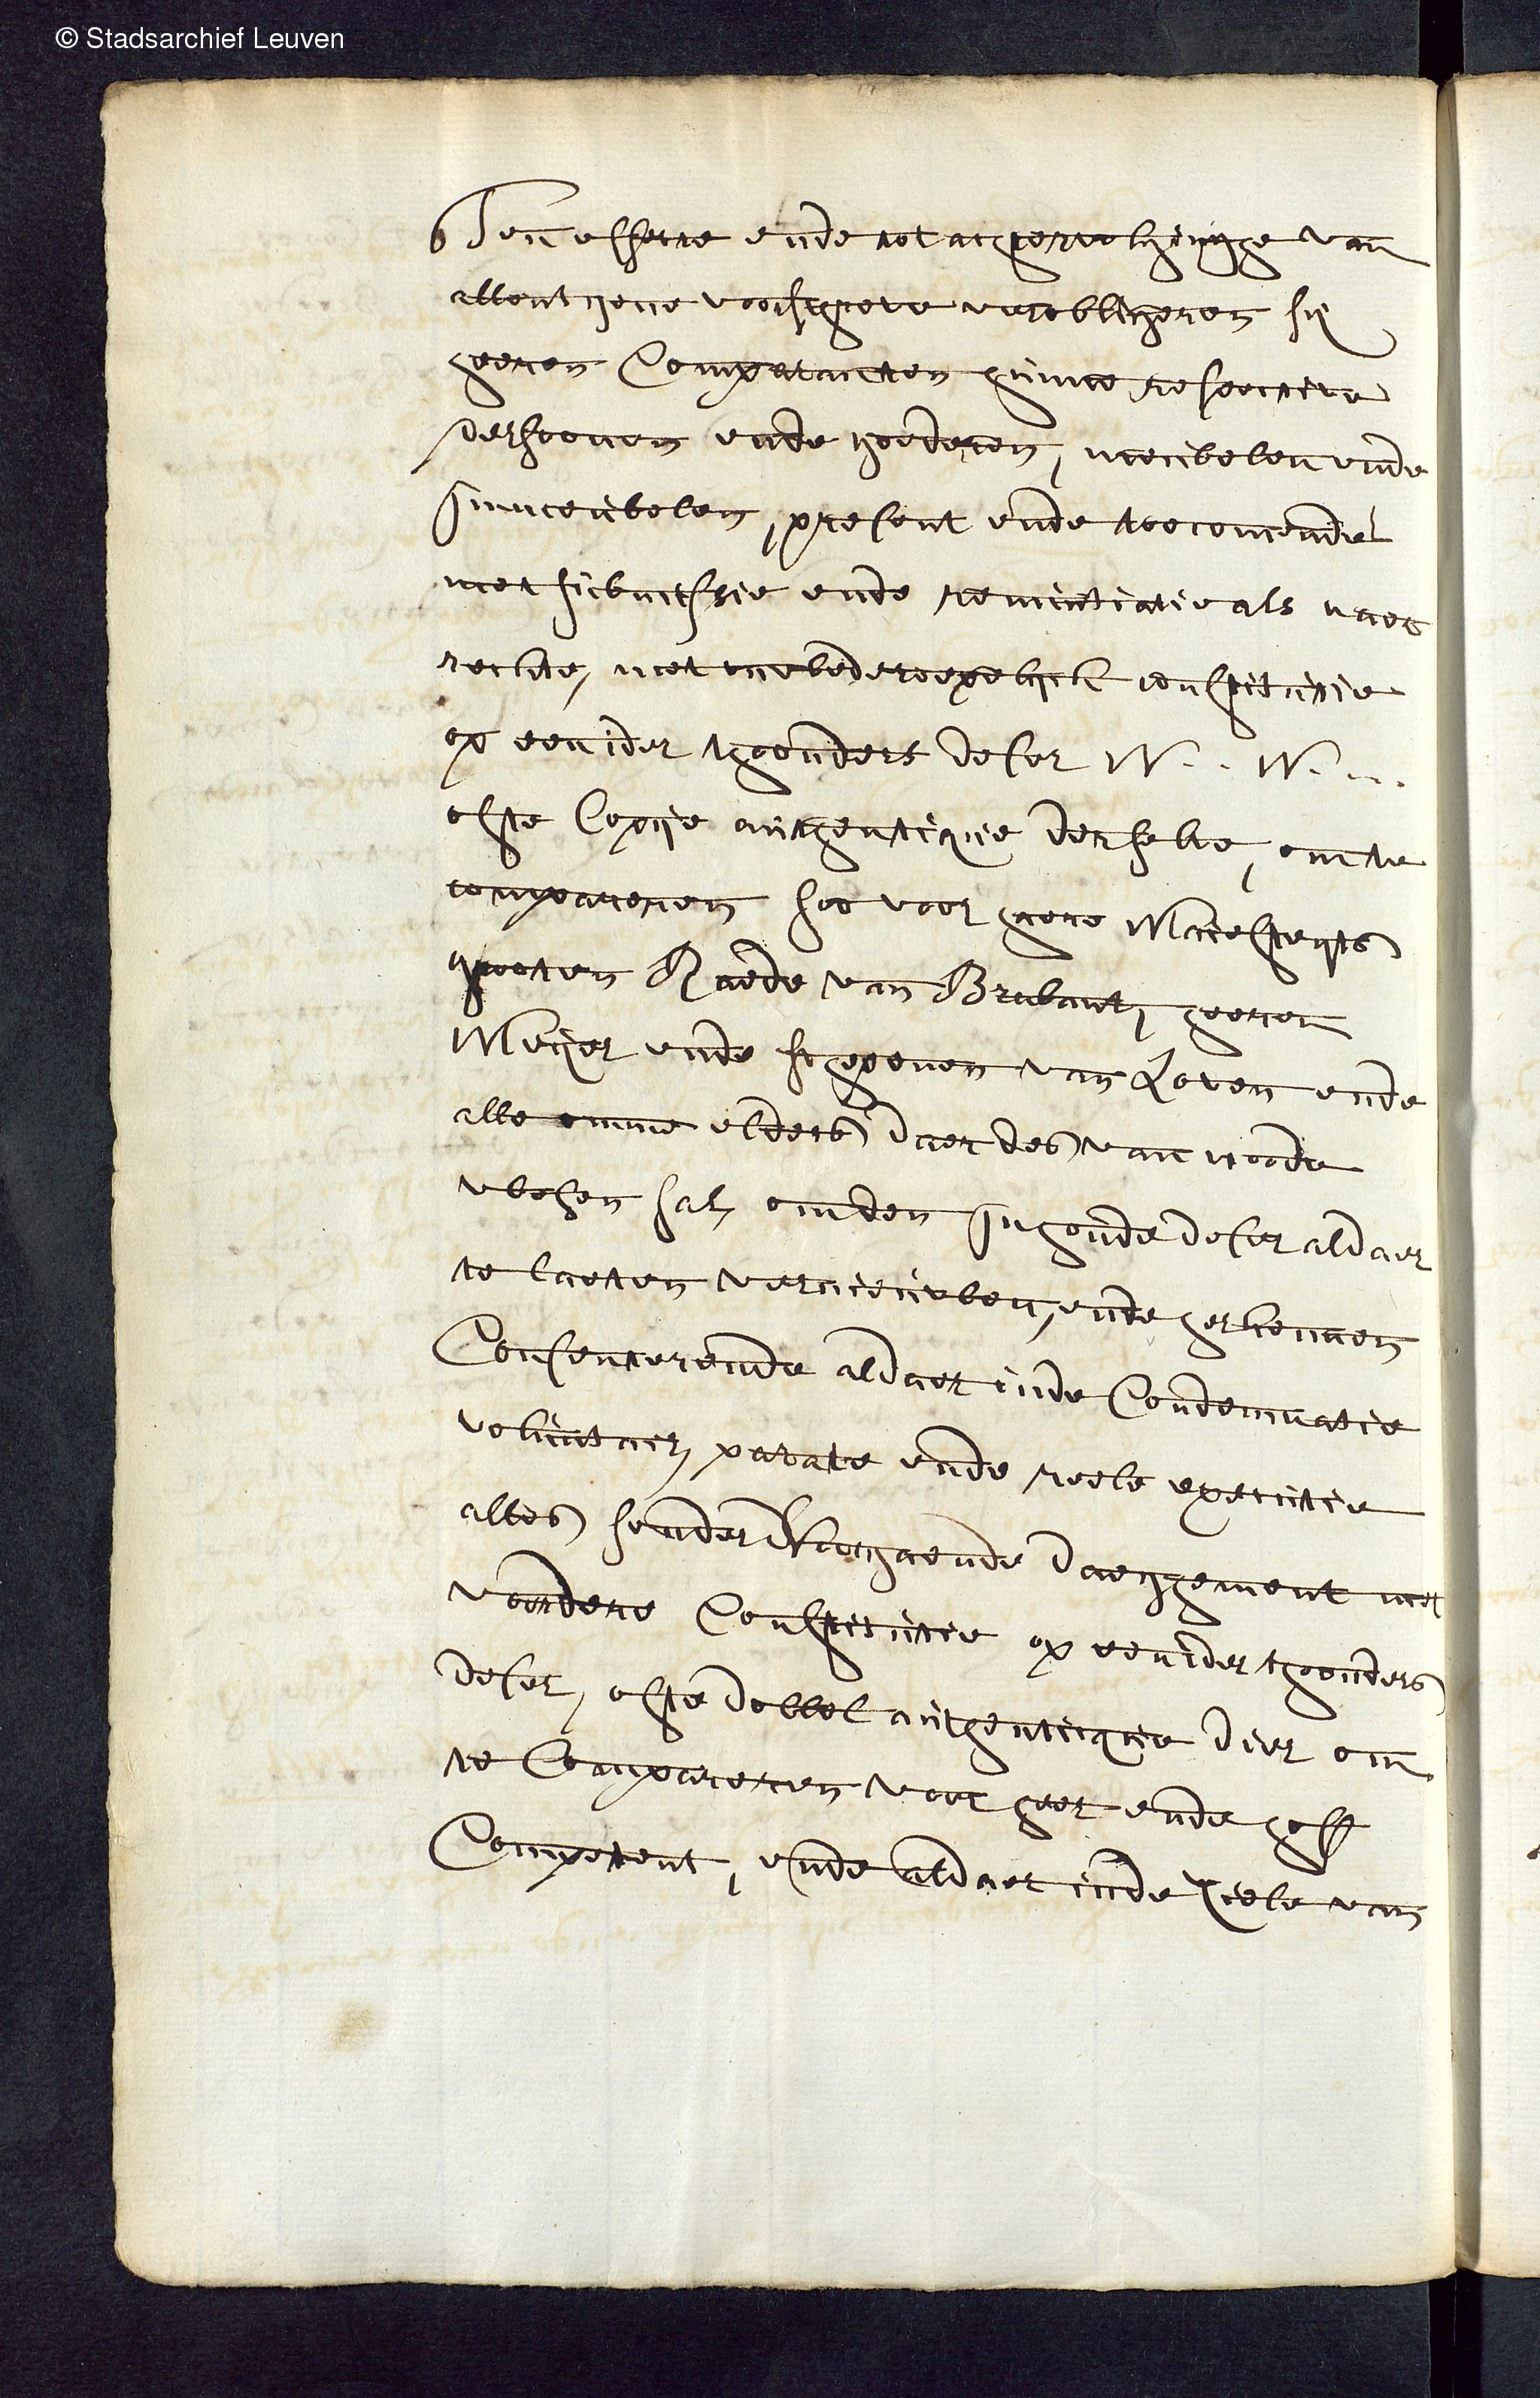 © Stadsarchief Leuven
Ten effecte ende tot achtervolginghe van
allentgene voorschreve verobligeren sy
heeren Comparanten hunne respective
persoonen ende goederen, meubelen ende
immeubelen, present ende toecomende
met submissie ende renuntiatie als naer
rechte, met onwederroepelyck constitutie
op eenider thoonders deser N.. N...
ofte Copye authentique derselve, om te
compareren soo voor haere Maiesteyts
grooten Raede van Brabant, heeren
Meyer ende schepenen van Loven ende
alle omme elders daer des van noode
wesen sal, om den inhoude deser aldaer
te laeten vernieuwen, ende herkennen
Consenterende aldaer inde Condemnatie
voluntair, parate ende reele executie
alles sonder voorgaende daeghement met
voordere Constitutie op eenider thoonders
deser, ofte dobbel authentique dier om
te Compareren voor heer ende hoff
Competent, ende aldaer inde ziele van